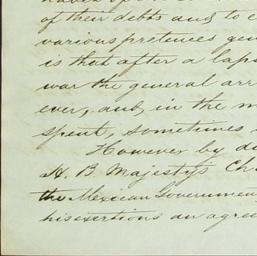 of their debts and to e
various pretences gen
is that after a lap
war the general arr
ever, and, in the m
spent, sometimes
However by d
H. B. Majesty's Ch
the Mexican Governmen
his exertions an agre